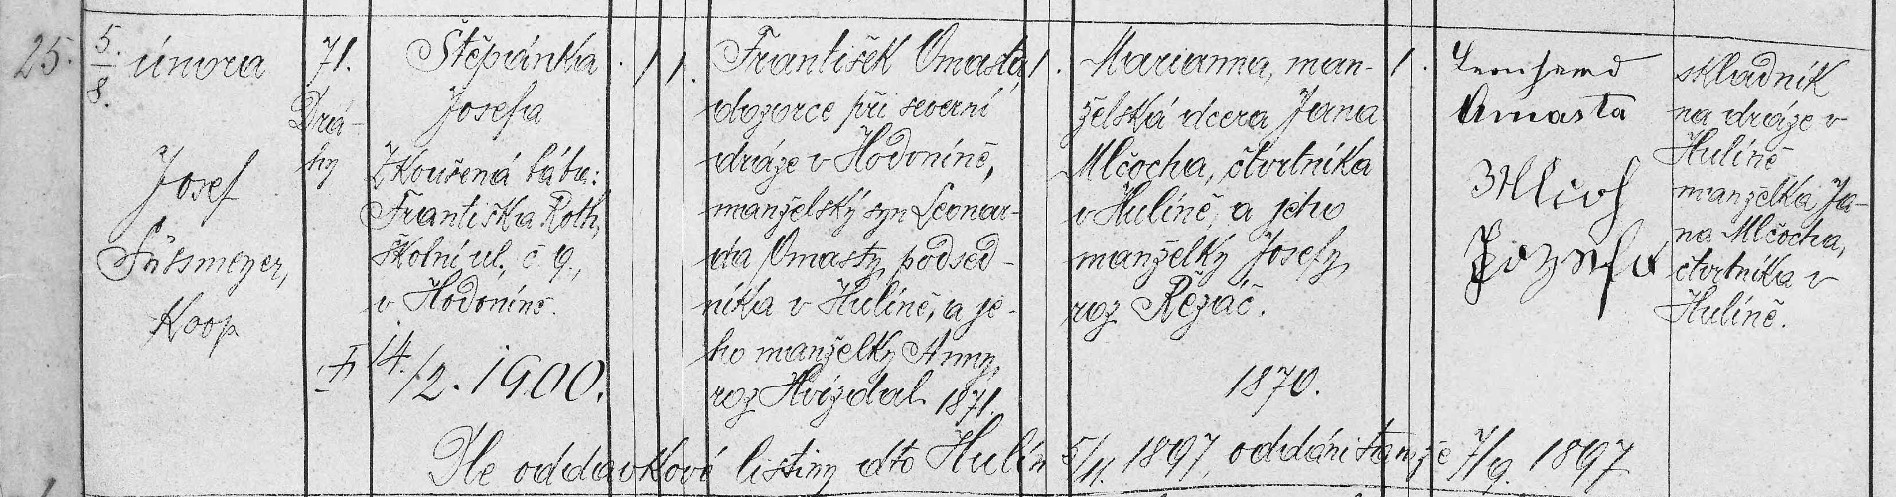 25.
5.
8.
února
Josef
Süssmeyer,
Koop
71.
Drá-
hy
Štěpánka
Josefa
Zkoušená bába:
Františka Roth,
Školní ul. č 9.,
v Hodoníně.
† 14./2. 1900.
1
1.
František Omasta,
dozorce při severní
dráze v Hodoníně,
manželský syn Leonar-
da Omasty, podsed-
níka v Hulíně, a je-
ho manželky Anny,
roz Hvízdal 1871.
1.
Marianna, man-
želská dcera Jana
Mlčocha, čtvrtníka
v Hulíně, a jeho
manželky Josefy,
roz Řezáč.
1870.
1.
Omasta
Mlčoh
Jozefa
skladník
na dráze v
Hulíně
manželka Ja-
na Mlčocha,
čtvrtníka v
Hulíně.
Dle oddavkové listiny dto Hulín 5/11. 1897, oddáni tamže 7/9. 1897